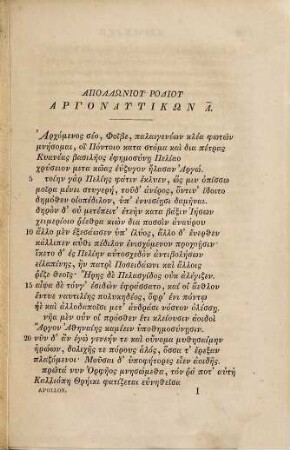 ΑΠΟΛΛΩΝΙΟΥ ΡΟΔΙΟΥ
ΑΡΓΟΝΑΥΤΙΚΩΝ Α̅.
Ἀρχόμενος σέο, Φοῖβε, παλαιγενέων κλέα φωτῶν
μνήσομαι, οἳ Πόντοιο κατὰ στόμα καὶ διὰ πέτρας
Κυανέας βασιλῆος ἐφημοσύνῃ Πελίαο
χρύσειον μετὰ κῶας ἐΰζυγον ἤλασαν Ἀργώ.
5 τοίην γὰρ Πελίης φάτιν ἔκλυεν, ὥς μιν ὀπίσσω
μοῖρα μένει στυγερή, τοῦδ᾽ ἀνέρος, ὅντιν᾽ ἴδοιτο
δημόθεν οἰοπέδιλον, ὑπ᾽ ἐννεσίῃσι δαμῆναι.
δηρὸν δ᾽ οὐ μετέπειτ᾽ ἐτεὴν κατὰ βάξιν Ἰήσων
χειμερίοιο ῥέεθρα κιὼν διὰ ποσσὶν ἀναύρου
10 ἄλλο μὲν ἐξεσάωσεν ὑπ᾽ ἰλύος, ἄλλο δ᾽ ἔνερθεν
κάλλιπεν αὖθι πέδιλον ἐνισχόμενον προχοῇσιν
ἵκετο δ᾽ ἐς Πελίην αὐτοσχεδὸν ἀντιβολήσων
εἰλαπίνης, ἣν πατρὶ Ποσειδάωνι καὶ ἄλλοις
ῥέζε θεοῖς· Ἥρης δὲ Πελασγίδος οὐκ ἀλέγιζεν.
15 αἶψα δὲ τόνγ᾽ ἐσιδὼν ἐφράσσατο, καί οἱ ἄεθλον
ἔντυε ναυτιλίης πολυκηδέος, ὄφρ᾽ ἐνὶ πόντῳ
ἠὲ καὶ ἀλλοδαποῖσι μετ᾽ ἀνδράσι νόστον ὀλέσσῃ.
νῆα μὲν οὖν οἱ πρόσθεν ἔτι κλείουσιν ἀοιδοὶ
Ἄργον Ἀθηναίης καμέειν ὑποθημοσύνῃσιν.
20 νῦν δ᾽ ἂν ἐγὼ γενεήν τε καὶ οὔνομα μυθησαίμην
ἡρώων, δολιχῆς τε πόρους ἁλός, ὅσσα τ᾽ ἔρεξαν
πλαζόμενοι· Μοῦσαι δ᾽ ὑποφήτορες εἶεν ἀοιδῆς.
πρῶτά νυν Ὀρφῆος μνησώμεθα, τόν ῥά ποτ᾽ αὐτὴ
Καλλιόπη Θρήϊκι φατίζεται εὐνηθεῖσα
APOLLON. I